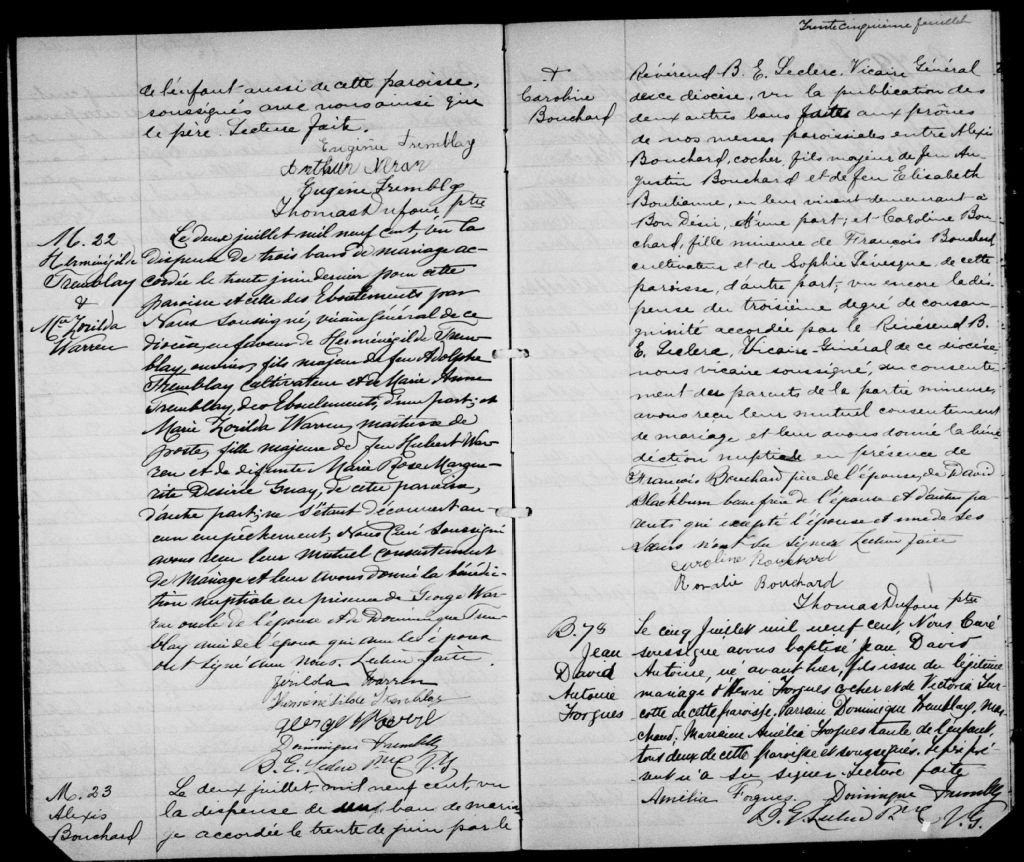 de l'enfant aussi de cette paroisse,
soussignés avec nous ainsi que
le père. Lecture faite.
Eugénie Tremblay
Arthur
Eugène Tremblay
Thomas Dufour, ptre
M. 22
Herménégilde
Tremblay
&
Mie Zorilda
Warren
Le deux juillet mil neuf cent, vu la
dispense de trois bans de mariage ac-
cordée le trente juin dernier pour cette
paroisse et celle des Eboulements par
Nous soussigné, vicaire général de ce
diocèse, en faveur de Herménégilde Trem-
blay, ouvrier, fils majeur de feu Adolphe
Tremblay cultivateur et de Marie Anne
Tremblay, des Eboulements, d'une part; et
Marie Zorilda Warren, maîtresse de
poste, fille majeure de feu Hubert War-
ren et de défunte Marie Rose Margue-
rite Desirée Guay, de cette paroisse,
d'autre part; ne s'étant découvert au-
cun empêchement, Nous Curé soussigné
avons reçu leur mutuel consentement
de mariage et leur avons donné la bénédic-
tion nuptiale en présence de George War-
ren oncle de l'épouse et de Dominique Trem-
blay ami de l'époux qui avec les époux
ont signé avec Nous. Lecture faite.
Zorilda Warren
Herménégilde Tremblay
George Warren
Dominique Tremblay
B. E. Leclerc Ptre C. V. G.
M. 23
Alexis
Bouchard
Le deux juillet mil neuf cent, vu
la dispense de ban de maria-
ge accordée le trente de juin par le
Trente cinquième feuillet
+
Caroline
Bouchard
Révérend B. E. Leclerc, Vicaire Général
de ce diocèse, vu la publication des
deux autres bans faites aux prônes
de nos messes paroissiales entre Alexis
Bouchard, cocher, fils majeur de feu Au-
gustin Bouchard et de feu Elisabeth
Boulianne, en leur vivant demeurant à
Bon Désir, d'une part; et Caroline Bou-
chard, fille mineure de François Bouchard
cultivateur et de Sophie Lévesque, de cette
paroisse, d'autre part; vu encore la dis-
pense du troisième degré de consan-
guinité accordée par le Révérend B.
E. Leclerc, Vicaire-Général de ce diocèse,
nous vicaire soussigné, du consente-
ment des parents de la partie mineure,
avons reçu leur mutuel consentement
de mariage et leur avons donné la béné-
diction nuptiale en présence de
François Bouchard père de l'épouse, de David
Blackburn beau frère de l'épouse et d'autres pa-
rents qui excepté l'épouse et une de ses
sœurs n'ont su signer. Lecture faite
Caroline Bouchard
Rosalie Bouchard
Thomas Dufour ptre
B. 78
Jean
David
Antoine
Forgues
Le cinq Juillet mil neuf cent, Nous Curé
soussigné avons baptisé Jean David
Antoine, né avant hier, fils issu du légitime
mariage d'Henri Forgues cocher et de Victoria Tur-
cotte de cette paroisse. Parrain Dominique Tremblay, mar-
chand. Marraine Amélia Forgues tante de l'enfant,
tous deux de cette paroisse et soussignés. Le père pré-
sent n'a su signer. Lecture faite
Amélia Forgues. Dominique Tremblay
B. E. Leclerc Ptre C. V. G.